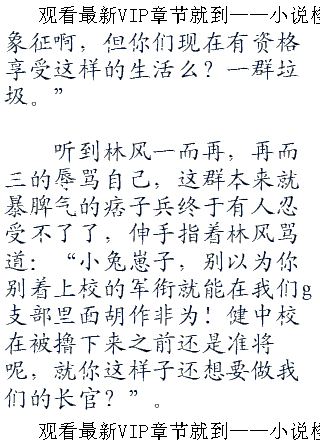 观看最新VIP章节就到——小说
象征啊，但你们现在有资格
享受这样的生活么？一群垃
圾。”
听到林风一而再，再而
三的辱骂自己，这群本来就
暴脾气的痞子兵终于有人忍
受不了了，伸手指着林风骂
道：“小兔崽子，别以为你
别着上校的军衔就能在我们g
支部里面胡作非为！健中校
在被撸下来之前还是准将
呢，就你这样子还想要做我
们的长官？”。
观看最新VIP章节就到——小说